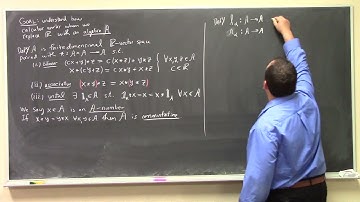 Goal: understand how
calculus works when we
replace ℝ with an algebra A
Def/ A is a finite dimensional ℝ-vector space
paired with * : A × A → A s.t.
(i) bilinear (cx+y)*z = c(x*z) + y*z
x*(cy+z) = c(x*y) + x*z } ∀x,y,z ∈ A c ∈ ℝ
(ii) associative (x*y)*z = x*(y*z)
(iii) unital ∃ 1_A ∈ A s.t. 1_A*x = x = x*1_A ∀x ∈ A
We say x ∈ A is an A-number
If x*y = y*x ∀x,y ∈ A then A is commutative
Def/ : A → A
: A → A